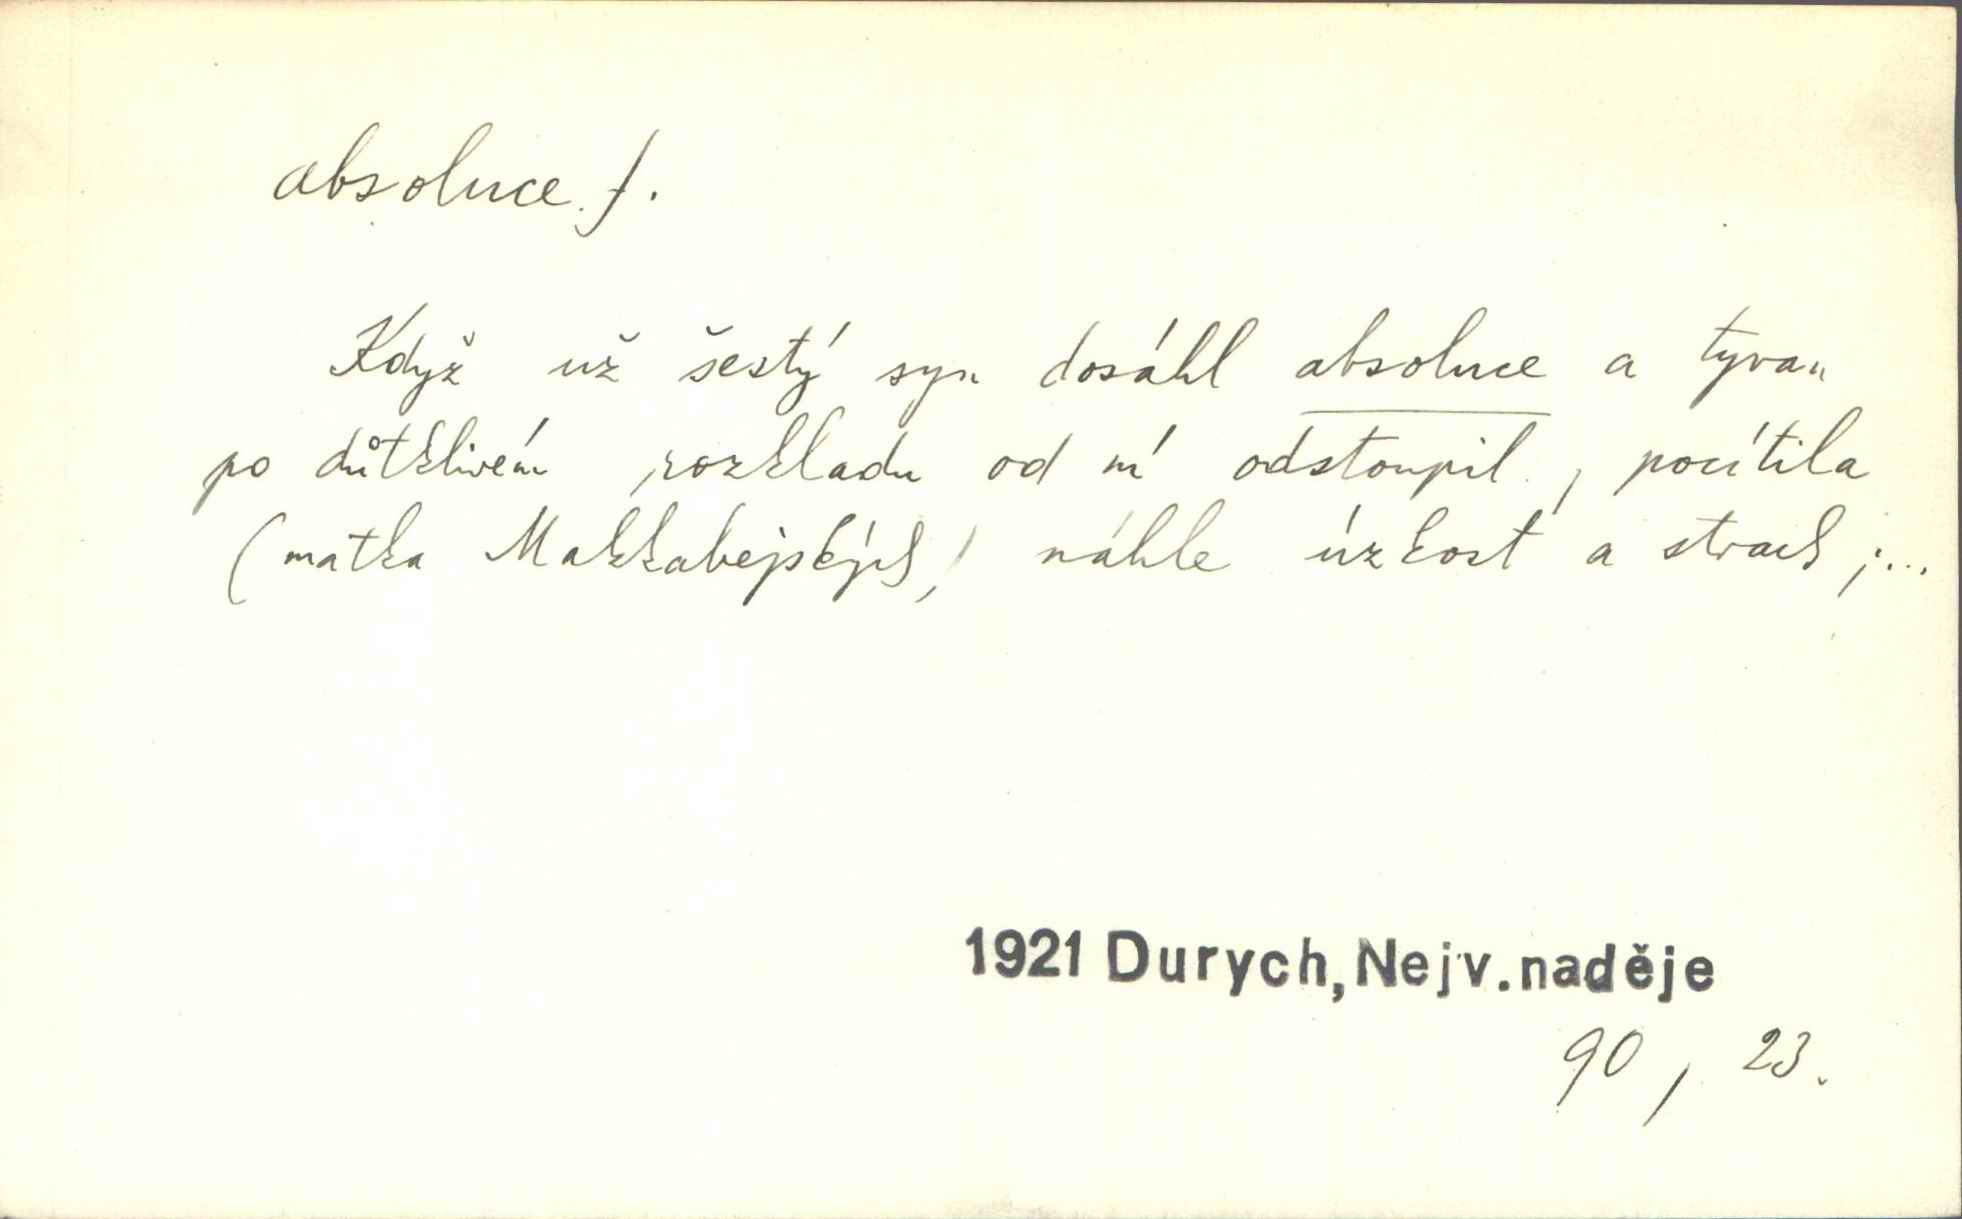 absoluce f.
Když už šestý syn dosáhl absoluce a tyran
po důtklivém rozkladu od ní odstoupil, pocítila
(matka Makkabejských) náhle úzkost a strach;...
1921 Durych, Nejv. naděje
90, 23.